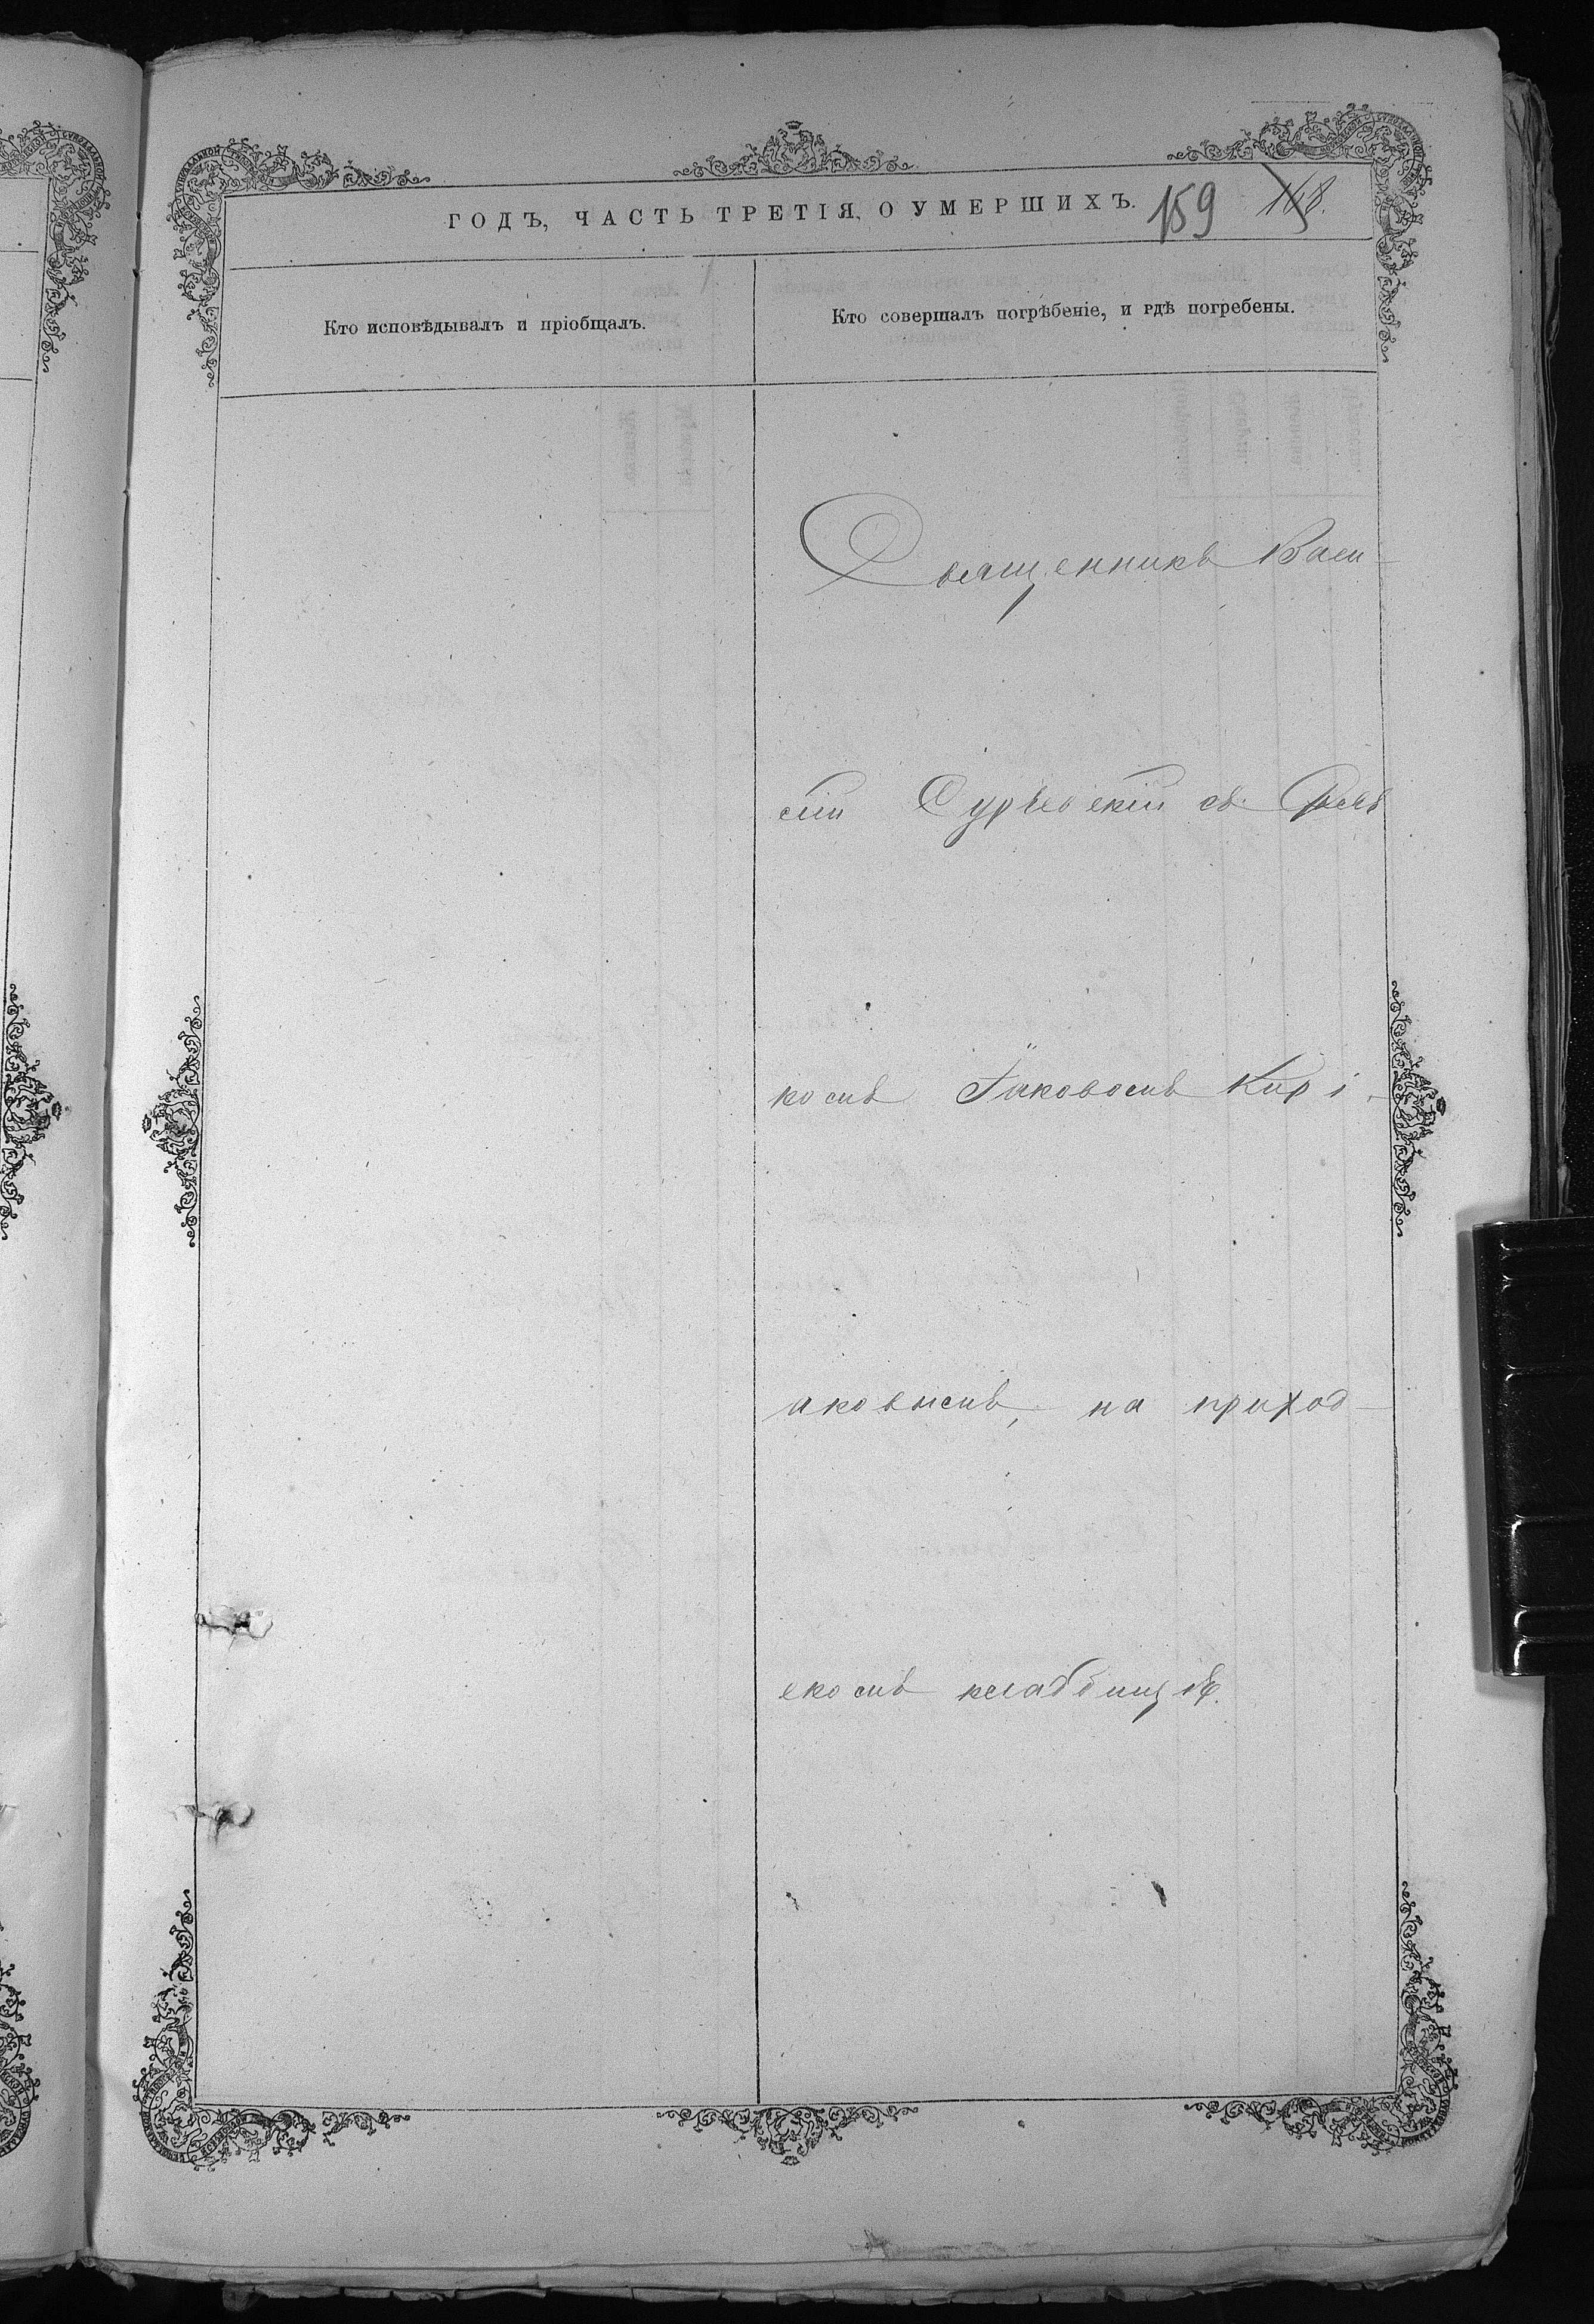 ГОДЪ, ЧАСТЬ ТРЕТІЯ, О УМЕРШИХЪ.
159
168.
Кто исповѣдывалъ и пріобщалъ.
Кто совершалъ погрѣбеніе, и гдѣ погребены.
Священникъ Васи-
лій Сурѣвскій съ Псал
комъ Іаковомъ Кирі-
аковымъ, на приход-
скомъ кладбищѣ.